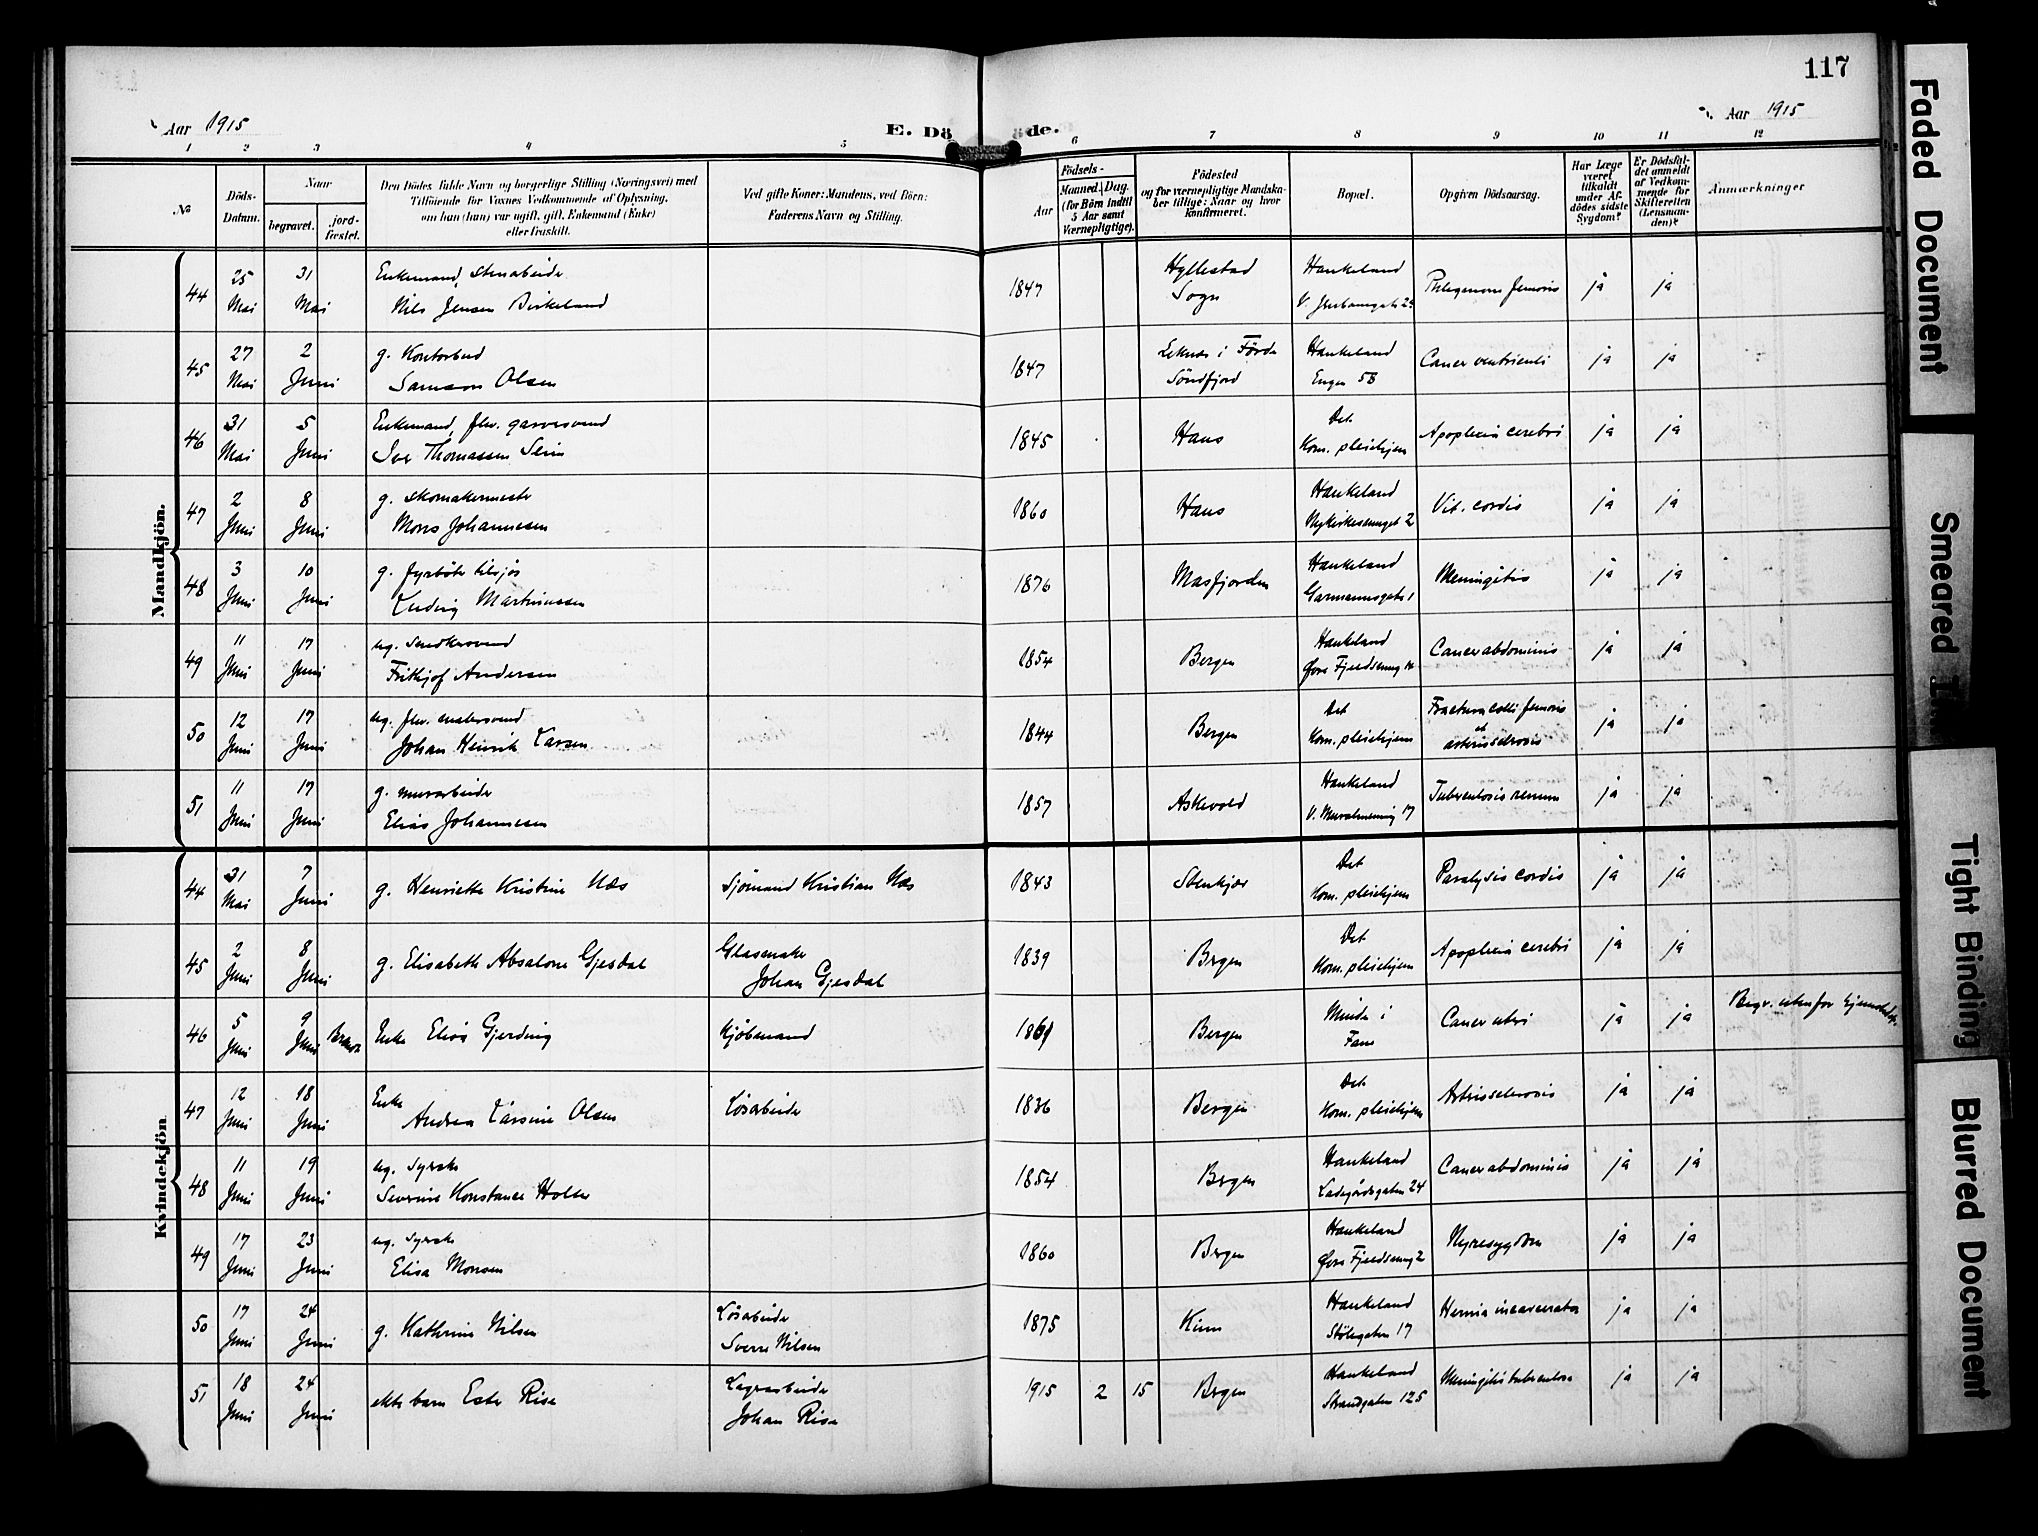 117
Aar 1915
E. Dö
öde.
Aar 1915
1 2 3 4 5 6 7 8 9 10 11 12
No
Döds-
Datum.
Naar
begravet.
jord-
fæstet.
Den Dödes fulde Navn og borgerlige Stilling (Næringsvei) med
Tilföiende for Voxnes Vedkommende af Oplysning,
om han (hun) var ugift, gift, Enkemand (Enke)
eller fraskilt.
Ved gifte Koner: Mandens, ved Börn:
Faderens Navn og Stilling.
Födsels-
Aar
Maaned. Dag.
(for Börn indtil
5 Aar samt
Værnepligtige).
Födested
og for værnepligtige Mandska-
ber tillige: Naar og hvor
konfirmeret.
Bopæl.
Opgiven Dödsaarsag.
Har Læge
været
tilkaldt
under Af-
dødes sidste
Sygdom?
Er Dödsfal-
det anmeldt
af Vedkom-
mende for
Skifteretten
(Lensman-
den)?
Anmærkninger
Mandkjön.
44 25 Mai 31 Mai Enkemand, stenarbeider
Nils Jensen Birkeland 1847 Hyllestad
Sogn Haukeland Phlegmone femoris ja ja
45 27 Mai 2 Juni g. Kontorbud
Samson Olsen 1847 i Förde
Söndfjord Haukeland
Engen 58 Cancer ventriculi ja ja
46 31 Mai 5 Juni Enkemand, fhv. garversvend
Thomassen Seim 1845 Haus Det
Kom. pleiehjem Apoplexia cerebri ja ja
47 2 Juni 8 Juni g. Skomakermester
Mons Johannesen 1860 Haus Haukeland
Nykirkesmuget 2 Vit. cordis ja ja
48 3 Juni 10 Juni g. fyrbøter tilsjøs
Ludvig Martinussen 1876 Masfjorden Haukeland
Garmannsgate 1 Meningitis ja ja
49 11 Juni 17 Juni ug.
Frithjof Andersen 1854 Bergen Haukeland
Øvre Fjeldsmug Cancer abdominis ja ja
50 12 Juni 17 Juni ug. fhv. malersvend
Johan Henrik Larsen 1844 Bergen Det
Kom. pleiehjem Fractura colli femoris
et
arteriosclerosis ja ja
51 11 Juni 17 Juni g. murarbeider
Elias Johannesen 1857 Askevold Haukeland
V. Muralmenning 17 Tuberculosis renum ja ja
Kvindekjön
44 31 Mai 7 Juni g. Henriette Kristine Næs Sjømand Kristian Næs 1843 Stenkjær Det
Kom. pleiehjem Paralysis cordis ja ja
45 2 Juni 8 Juni g. Elisabeth Absalone Gjesdal Glasmaker
Johan Gjesdal 1839 Bergen Det
Kom. pleiehjem Apoplexia cerebri ja ja
46 5 Juni 9 Juni Enke Elise Gjerding Kjøbmand 1861 Bergen Minde i
Fane Cancer uteri ja ja Begr. utenfor
47 12 Juni 18 Juni Enke
Andrea Larsine Olsen Løsarbeider 1836 Bergen Det
Kom. pleiehjem Arteriosclerosis ja ja
48 11 Juni 19 Juni ug. Syerske
Severine Konstance Holter 1854 Bergen Haukeland
Ladegårdsgaten 24 Cancer abdominis ja ja
49 17 Juni 23 Juni ug. Syerske
Elisa Monsen 1860 Bergen Haukeland
Øvre Fjeldsmug 2 Nyresygdom ja ja
50 17 Juni 24 Juni g. Kathrine Nilsen Løsarbeider
Sverre Nilsen 1875 Kinn Haukeland
Stølegaten 17 Hernia incarcerata ja ja
51 18 Juni 24 Juni ekte barn Ester Rise Lagerarbeider
Johan Rise 1915 2 15 Bergen Haukeland
Strandgaten 125 Meningitis tuberculosa ja ja
Faded Document
Smeared
Tight Binding
Blurred Document